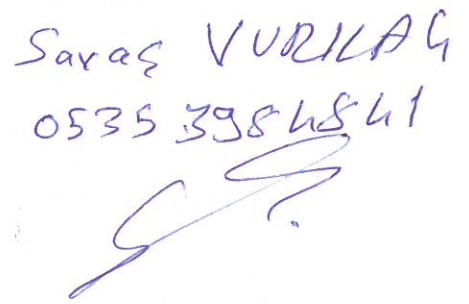 Savaş VURKAÇ
0535 398 48 41